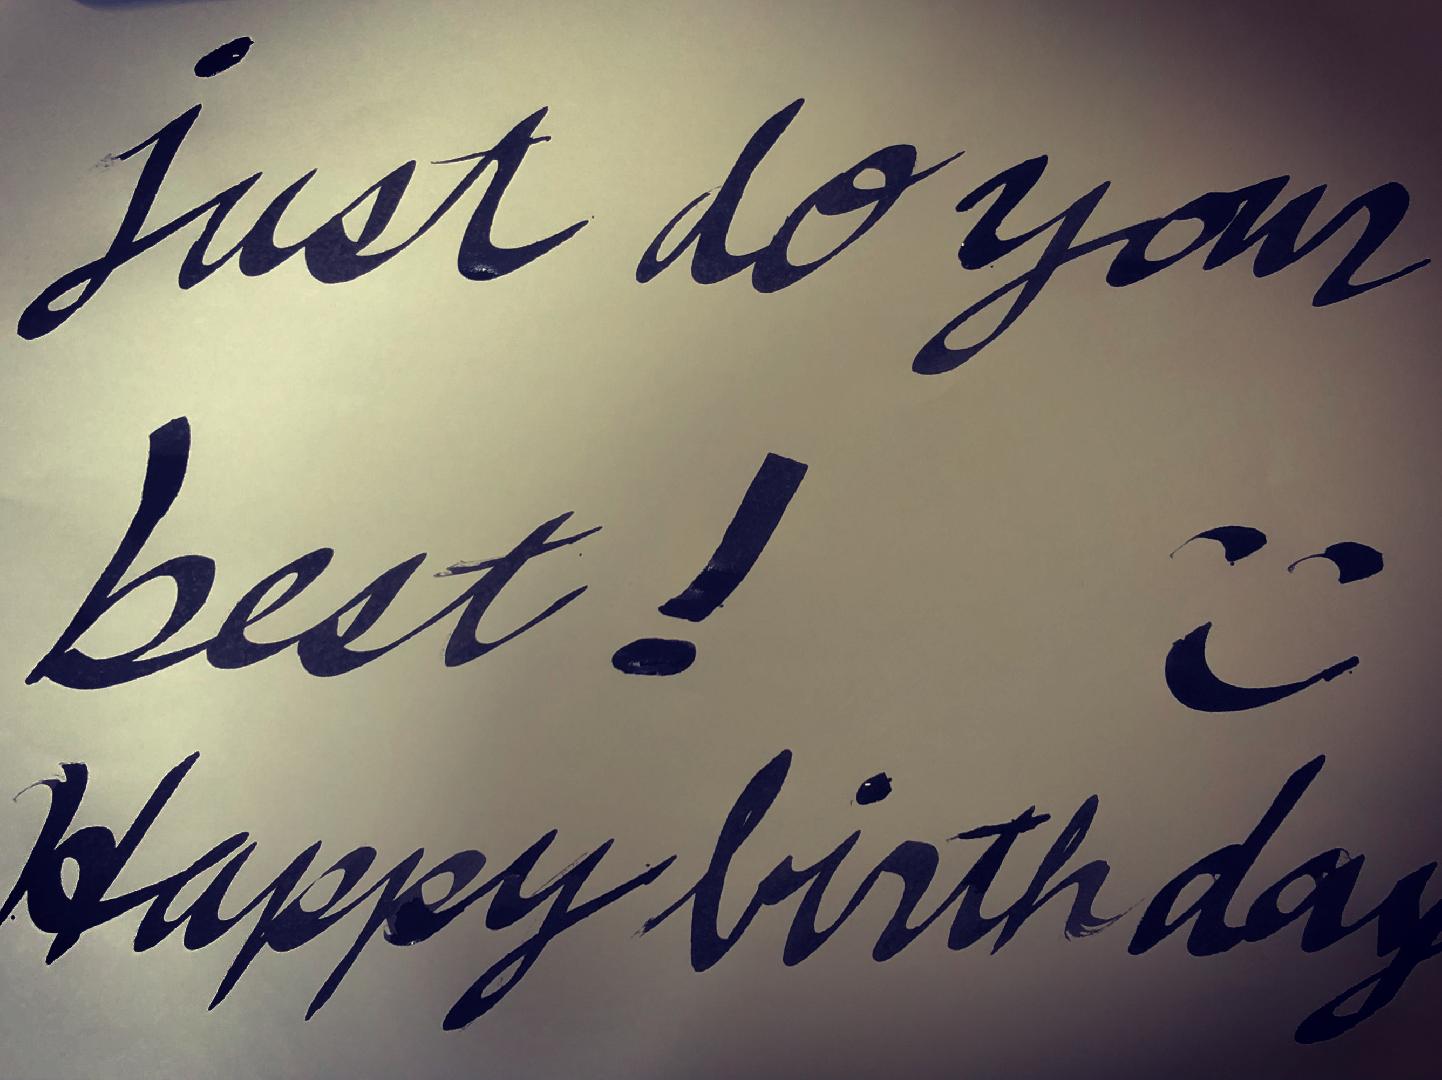 just do your
best!
Happy birthday